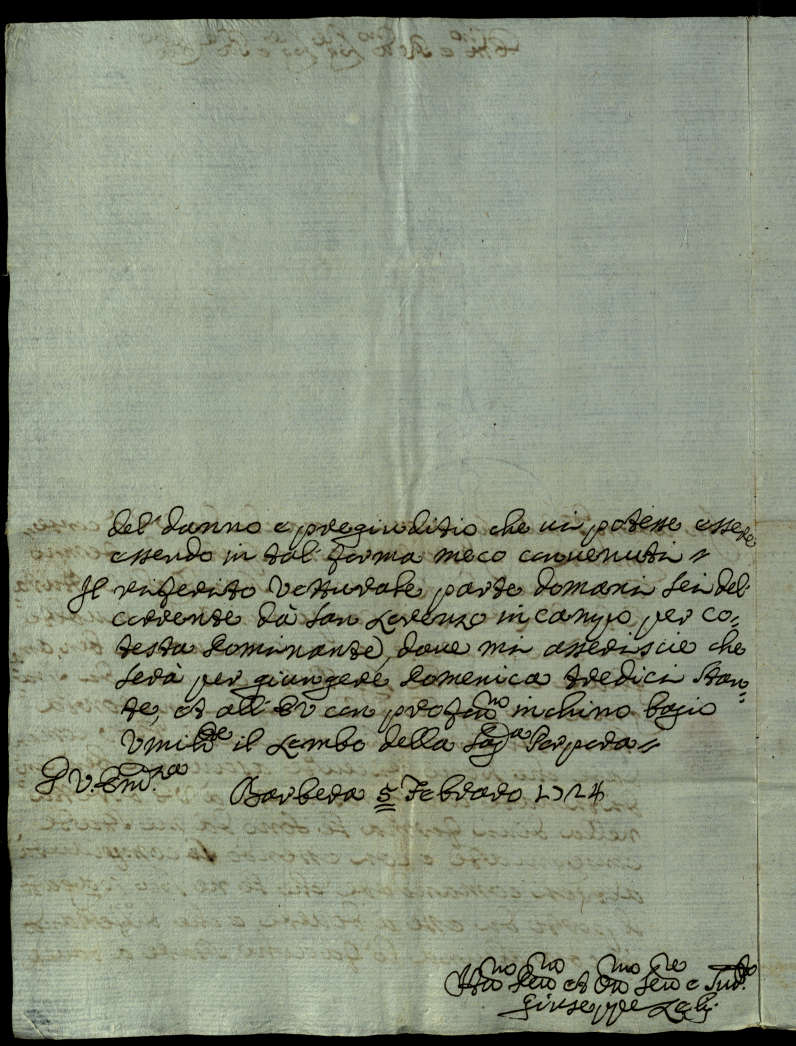 del danno e pregiuditio che vi potesse essere
essendo in tal forma meco convenuti
Il riferito Vetturale parte domani sei del
corrente dà San Lorenzo in campo per co,
testa Dominante, dove mi asserisce che
serà per giungere Domenica tredici stan=
te, et all' EV con profon.mo inchino bagio
Vmilm.te il Lembo della Sag.a Porpora
D V. Em.za
Barbera 5 Febraro 1724
Um.mo Dev.mo et Ob.mo Ser.re e Sud.to
Giuseppe